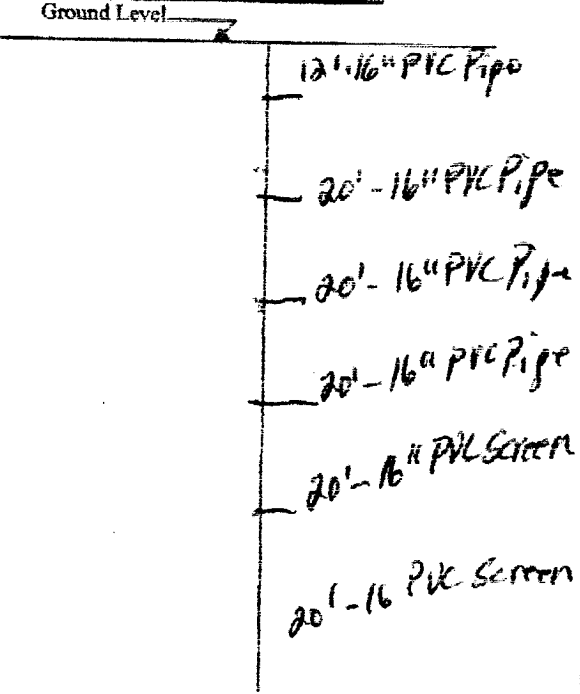 Ground Level
12'-16" PVC Pipe
20'-16" PVC Pipe
20'-16" PVC Pipe
20'-16" PVC Pipe
20'-16" PVC Screen
20'-16 PVC Screen